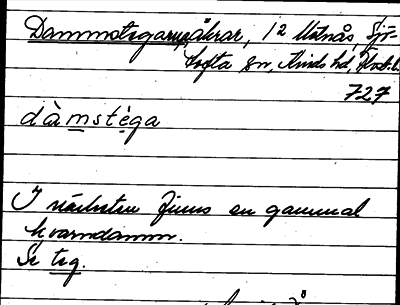 Dammstegarna, åkrar, 12 Utnäs, Sjö-
tofta sn, Kinds hd, Älvsb. l.
727
dàmstéga
I närheten finns en gammal
kvarndamm.
Se teg.